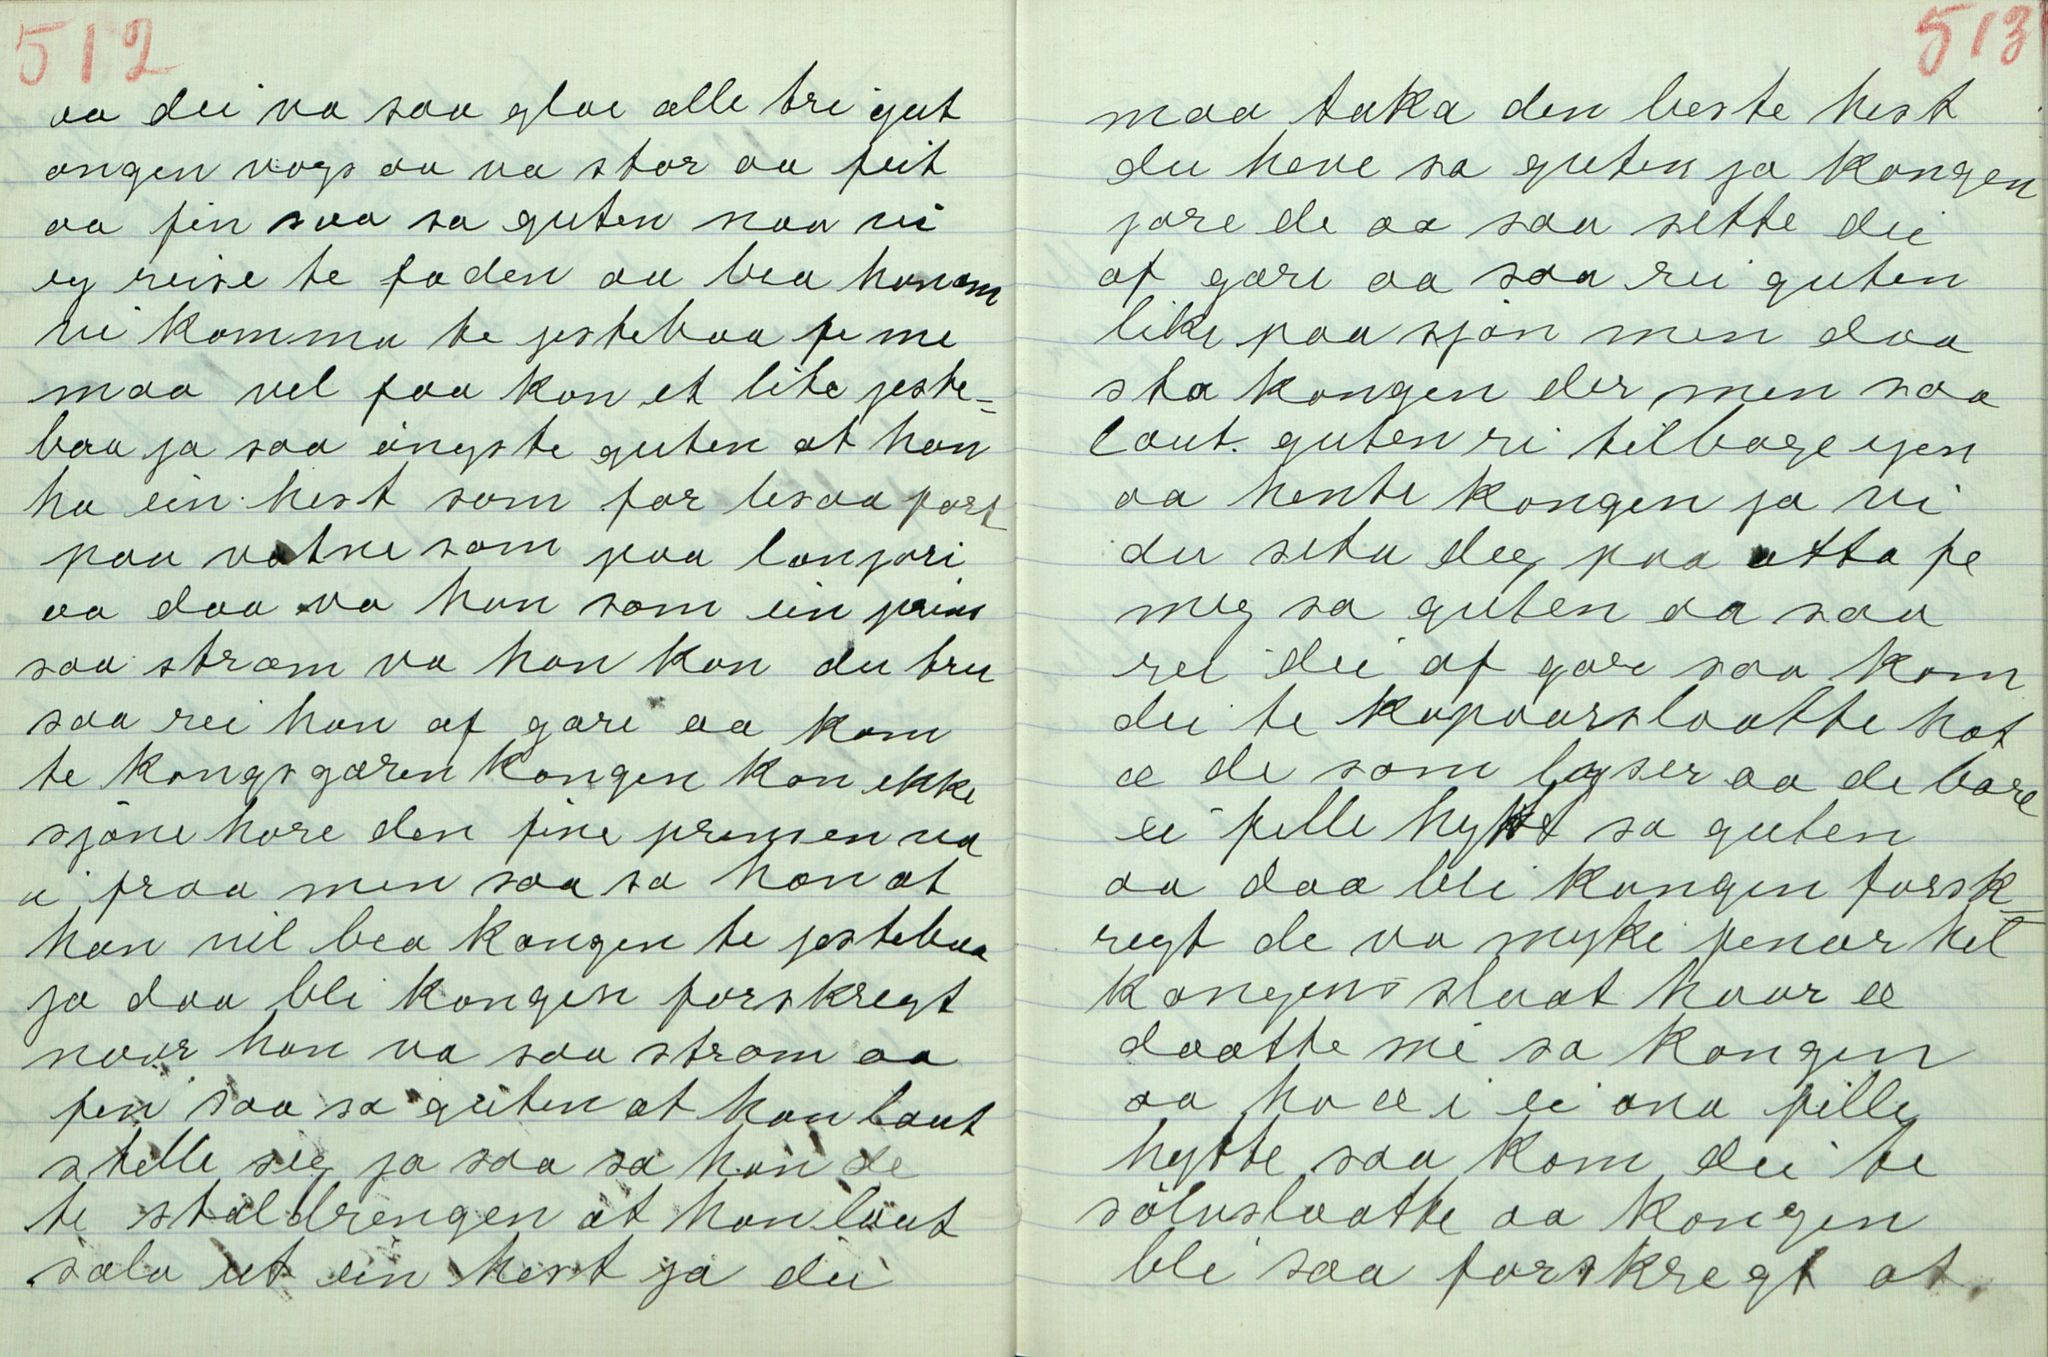 512
aa dei va saa glae alle tri gut
ongen vogs aa va stor aa feit
aa fin saa sa guten naa vi
eg reise te faden aa bea honom
vi komma te jestebaa fe me
maa vel faa kon et lite jeste=
baa ja saa öngste guten at han
ha ein hest som for lesaa fort
paa vatne som paa lanjori
aa daa va han som ein prins
saa stram va han kan du tru
saa rei han af gare aa kom
te kongsgaren kongen kan ikke
sjöne hore den fine prinsen va
i fraa men saa sa han at
han vil bea kongen te jestebaa
ja daa blei kongen forskregt
naar han va saa stram aa
fin saa sa guten at han laut
stelle seg ja saa sa han de
te staldrengen at han laut
sala ut ein hest ja dei
513
maa taka den beste hest
du heve sa guten ja kongen
jore de aa saa sette dei
af gare aa saa rei guten
like paa sjön men daa
sto kongen der men saa
laut guten ri tilbage igen
aa hente kongen ja vi
du seta deg paa atta fe
meg sa guten aa saa
rei dei af gare saa kom
dei te kopaarslaatte hot
æ de som lyser aa de bare
ei fille hytt sa guten
aa daa blei kongen forsk=
regt de va myke penar hel
kongens slaat haar æ
daatte mi sa kongen
aa ho æ i ei ana fille
hytte saa kom dei te
sölvslaatte aa kongen
blei saa forskregt at